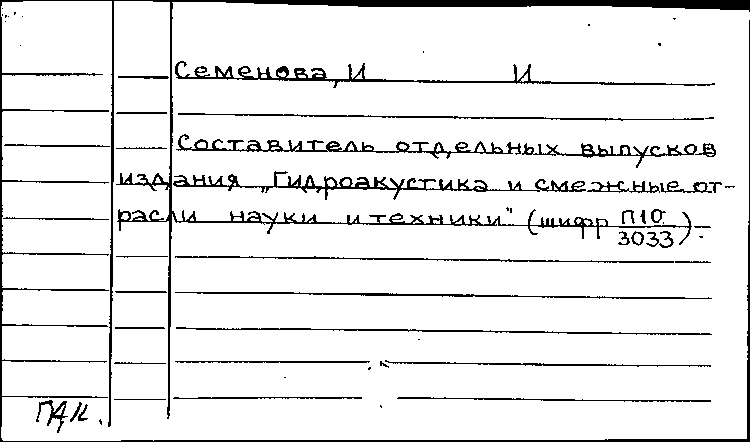 Семенова, И И
Составитель отдельных выпусков
издания „Гидроакустика и смежные от-
расли науки и техники" (шифр П10/3033).